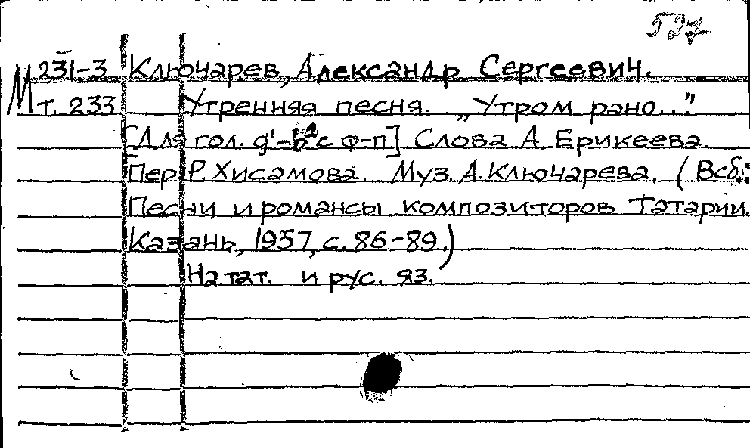 537
М 231-3 Ключарев, Александр Сергеевич.
т. 233 Утренняя песня. „Утром рано..."
[Для гол. g'-b² с ф-п] Слова А. Ерикеева.
Пер. Р. Хисамова. Муз. А. Ключарева. (В сб.:
Песни и романсы композиторов Татарии.
Казань, 1957, с. 86-89.)
На тат. и рус. яз.